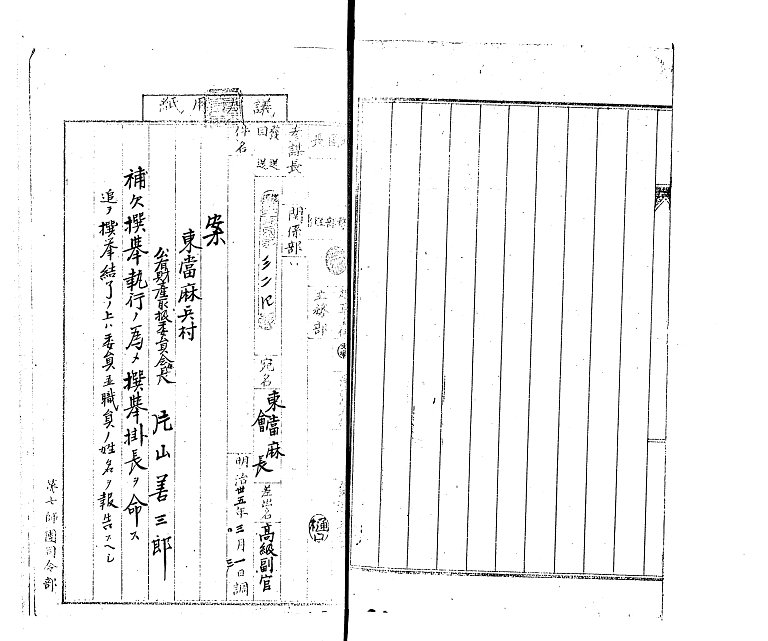 議用紙
参謀長
関係部
主務部
件名
宛名 東當麻會長
差出名 高級副官
明治卅五年三月三一日調
樋口
案
東當麻兵村
公有財産取扱委員会長 片山善三郎
補欠撰挙執行ノ為メ撰挙掛長ヲ命ス
追テ撰挙結了ノ上ハ委員並職員ノ姓名ヲ報告スヘシ
第七師團司令部